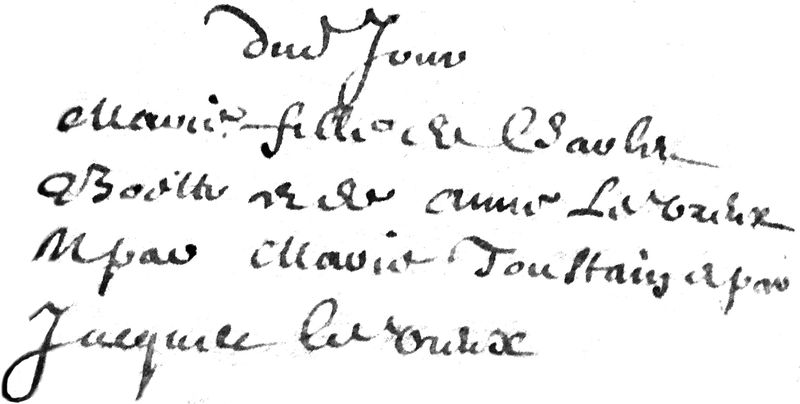 dud Jour
Marie fille de Charles
et de Anne Le vieux
N par Marie Toustain et par
Jacques Le vieux